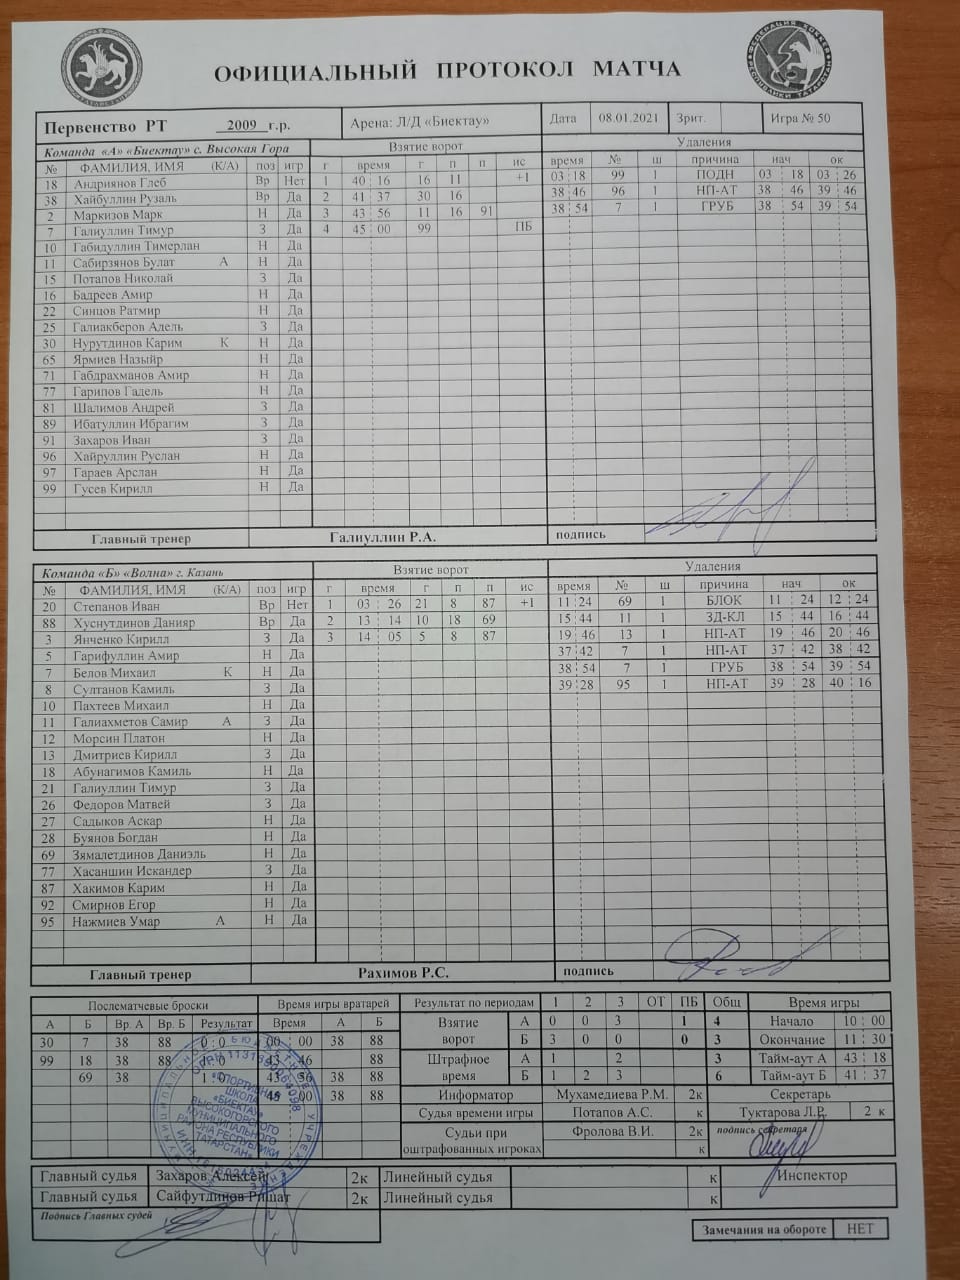 ОФИЦИАЛЬНЫЙ ПРОТОКОЛ МАТЧА
Первенство РТ 2009 г.р. Арена: Л/Д «Биектау» Дата 08.01.2021 Зрит. Игра № 50
Команда «А» «Биектау» с. Высокая Гора Взятие ворот Удаления
№ ФАМИЛИЯ, ИМЯ (К/А) поз игр г время г п п ис время № ш причина нач ок
18 Андриянов Глеб Вр Нет 1 40 16 16 11 +1 03 18 99 1 ПОДН 03 18 03 26
38 Хайбуллин Рузаль Вр Да 2 41 37 30 16 38 46 96 1 НП-АТ 38 46 39 46
2 Маркизов Марк Н Да 3 43 56 11 16 91 38 54 7 1 ГРУБ 38 54 39 54
7 Галиуллин Тимур З Да 4 45 00 99 ПБ
10 Габидуллин Тимерлан Н Да
11 Сабирзянов Булат А Н Да
15 Потапов Николай З Да
16 Бадреев Амир Н Да
22 Синцов Ратмир Н Да
25 Галиакберов Адель З Да
30 Нурутдинов Карим К Н Да
65 Ярмиев Назыйр Н Да
71 Габдрахманов Амир Н Да
77 Гарипов Гадель Н Да
81 Шалимов Андрей З Да
89 Ибатуллин Ибрагим З Да
91 Захаров Иван З Да
96 Хайруллин Руслан Н Да
97 Гараев Арслан Н Да
99 Гусев Кирилл Н Да
Главный тренер Галиуллин Р.А. подпись
Команда «Б» «Волна» г. Казань Взятие ворот Удаления
№ ФАМИЛИЯ, ИМЯ (К/А) поз игр г время г п п ис время № ш причина нач ок
20 Степанов Иван Вр Нет 1 03 26 21 8 87 +1 11 24 69 1 БЛОК 11 24 12 24
88 Хуснутдинов Данияр Вр Да 2 13 14 10 18 69 15 44 11 1 ЗД-КЛ 15 44 16 44
3 Янченко Кирилл З Да 3 14 05 5 8 87 19 46 13 1 НП-АТ 19 46 20 46
5 Гарифуллин Амир Н Да 37 42 7 1 НП-АТ 37 42 38 42
7 Белов Михаил К Н Да 38 54 7 1 ГРУБ 38 54 39 54
8 Султанов Камиль З Да 39 28 95 1 НП-АТ 39 28 40 16
10 Пахтеев Михаил Н Да
11 Галиахметов Самир А З Да
12 Морсин Платон Н Да
13 Дмитриев Кирилл З Да
18 Абунагимов Камиль Н Да
21 Галиуллин Тимур З Да
26 Федоров Матвей З Да
27 Садыков Аскар Н Да
28 Буянов Богдан Н Да
69 Зямалетдинов Даниэль Н Да
77 Хасаншин Искандер З Да
87 Хакимов Карим Н Да
92 Смирнов Егор Н Да
95 Нажмиев Умар А Н Да
Главный тренер Рахимов Р.С. подпись
Послематчевые броски Время игры вратарей Результат по периодам 1 2 3 ОТ ПБ Общ Время игры
А Б Вр. А Вр. Б Результат Время А Б Взятие ворот А 0 0 3 1 4 Начало 10 00
30 7 38 88 0 : 0 00 00 38 88 Б 3 0 0 0 3 Окончание 11 30
99 18 38 88 1 : 0 43 46 88 Штрафное время А 1 2 3 Тайм-аут А 43 18
69 38 1 : 0 43 56 38 88 Б 1 2 3 6 Тайм-аут Б 41 37
45 00 38 88 Информатор Мухамедиева Р.М. 2к Секретарь
Судья времени игры Потапов А.С. к Туктарова Л.Р. 2 к
Судьи при оштрафованных игроках Фролова В.И. 2к подпись секретаря
к
Главный судья Захаров Алексей 2к Линейный судья к Инспектор
Главный судья Сайфутдинов Ришат 2к Линейный судья к
Подпись Главных судей
Замечания на обороте НЕТ
«СПОРТИВНАЯ
ШКОЛА
«БИЕКТАУ»
ВЫСОКОГОРСКОГО
МУНИЦИПАЛЬНОГО
РАЙОНА РЕСПУБЛИКИ
ТАТАРСТАН»